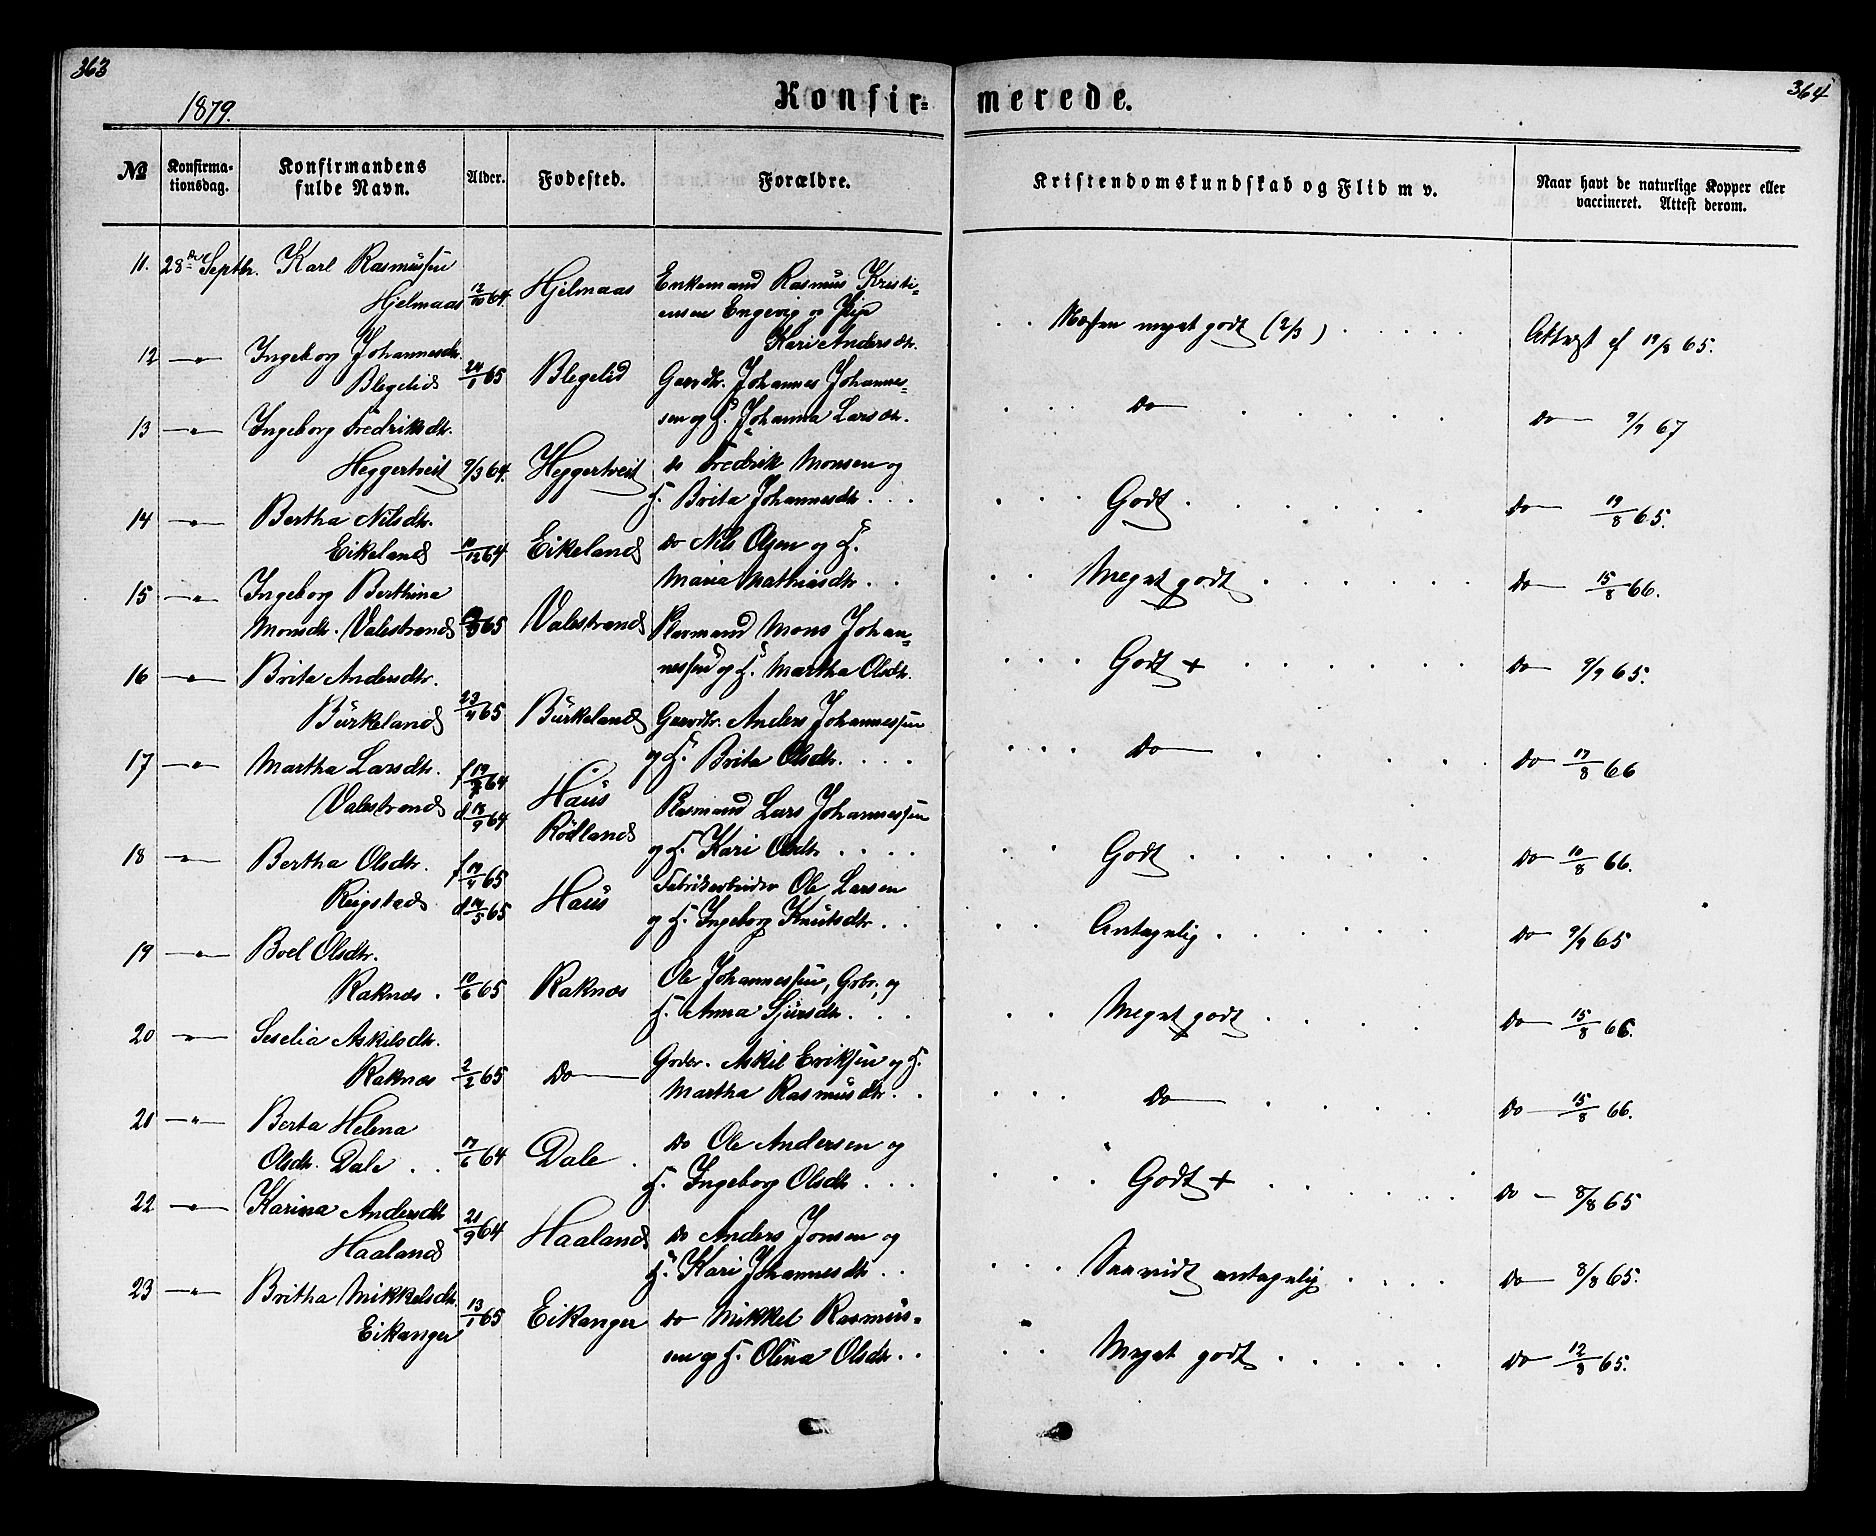 363
1879.
Konfir-
№
Konfirma-
tionsdag.
Konfirmandens
fulde Navn.
Alder.
Fødested.
Forældre.
11. 28de Septbr. Karl Rasmussen
Hjelmaas 12/10 64. Hjelmaas
Enkemand Rasmus Kristi-
ensen Engevig og
Kari Andersdtr.
12 —"— Ingeborg Johannesdtr.
Blegelid 24/1 65 Blegelid
Gaardbr. Johannes Johannes-
sen og H. Johanna Larsdtr.
13 —"— Ingeborg Fredriksdtr.
Heggertveit 9/3 64. Heggertveit
do Fredrik Monsen og
H. Brita Johannesdtr. . .
14 —"— Bertha Nilsdtr.
Eikeland 10/12 64 Eikeland
do Nils Olsen og H.
Maria Mathiasdtr. . .
15 —"— Ingeborg Berthina
Monsdtr. Valestrand 65 Valestrand
Plasmand Mons Johan-
nessen og H. Martha Olsdtr.
16 —"— Brita Andersdtr.
Burkeland 23/4 65 Burkeland
Gaardbr. Anders Johannessen
og H. Brita Olsdtr. . . .
17 —"— Martha Larsdtr.
Valestrand
f 64
d 18/9 64
Haus
Rødland
Plasmand Lars Johannessen
og H. Kari Olsdtr. . . .
18 —"— Bertha Olsdtr.
Reigstad
f 19/4 65
d 14/5 65
Haus
Fabrikarbeider Ole Larsen
og H. Ingeborg Knutsdtr. . .
19 —"— Boel Olsdtr.
Raknes . 10/6 65 Raknes
Ole Johannessen, Grbr., og
H. Anna Sjursdtr. . . .
20 —"— Seselia Askilsdtr.
Raknes 2/2 65 do
Grdbr. Askil Eriksen og H.
Martha Rasmusdtr. . .
21 —"— Berta Helena
Olsdtr. Dale . . 17/6 64 Dale .
do Ole Andersen og
H. Ingeborg Olsdtr . . .
22 —"— Karina Andersdtr
Haaland 21/9 64 Haaland
do Anders Jonsen og
H. Kari Johannesdtr . .
23 —"— Britha Mikkelsdtr.
Eikanger 13/1 65 Eikanger
do Mikkel Rasmus-
sen og H. Olina Olsdtr. . .
364
merede.
Kristendomskundskab og Flid m v.
Naar havt de naturlige Kopper eller
vaccineret. Attest derom.
. . Næsten meget godt (2/3) . . . . . Attest af 19/8 65.
. . . do . . . . . do 9/9 67
. . . Godt . . . . . . do 19/8 65.
. . Meget godt . . . . . . do 15/8 66.
. . . Godt + . . . . . . do 9/9 65.
. . . do . . . . . do 17/8 66
. . Godt . . . . . . do 10/8 66.
. . Antagelig . . . . . . do 9/9 65
. . Meget godt . . . . do 15/8 66.
. . . do . . . . do 15/8 66.
. . . Godt + . . . . . do — 8/8 65
. . . Saavidt antagelig . . . . do 8/8 65.
. . Meget godt . . . . . do 12/8 65.